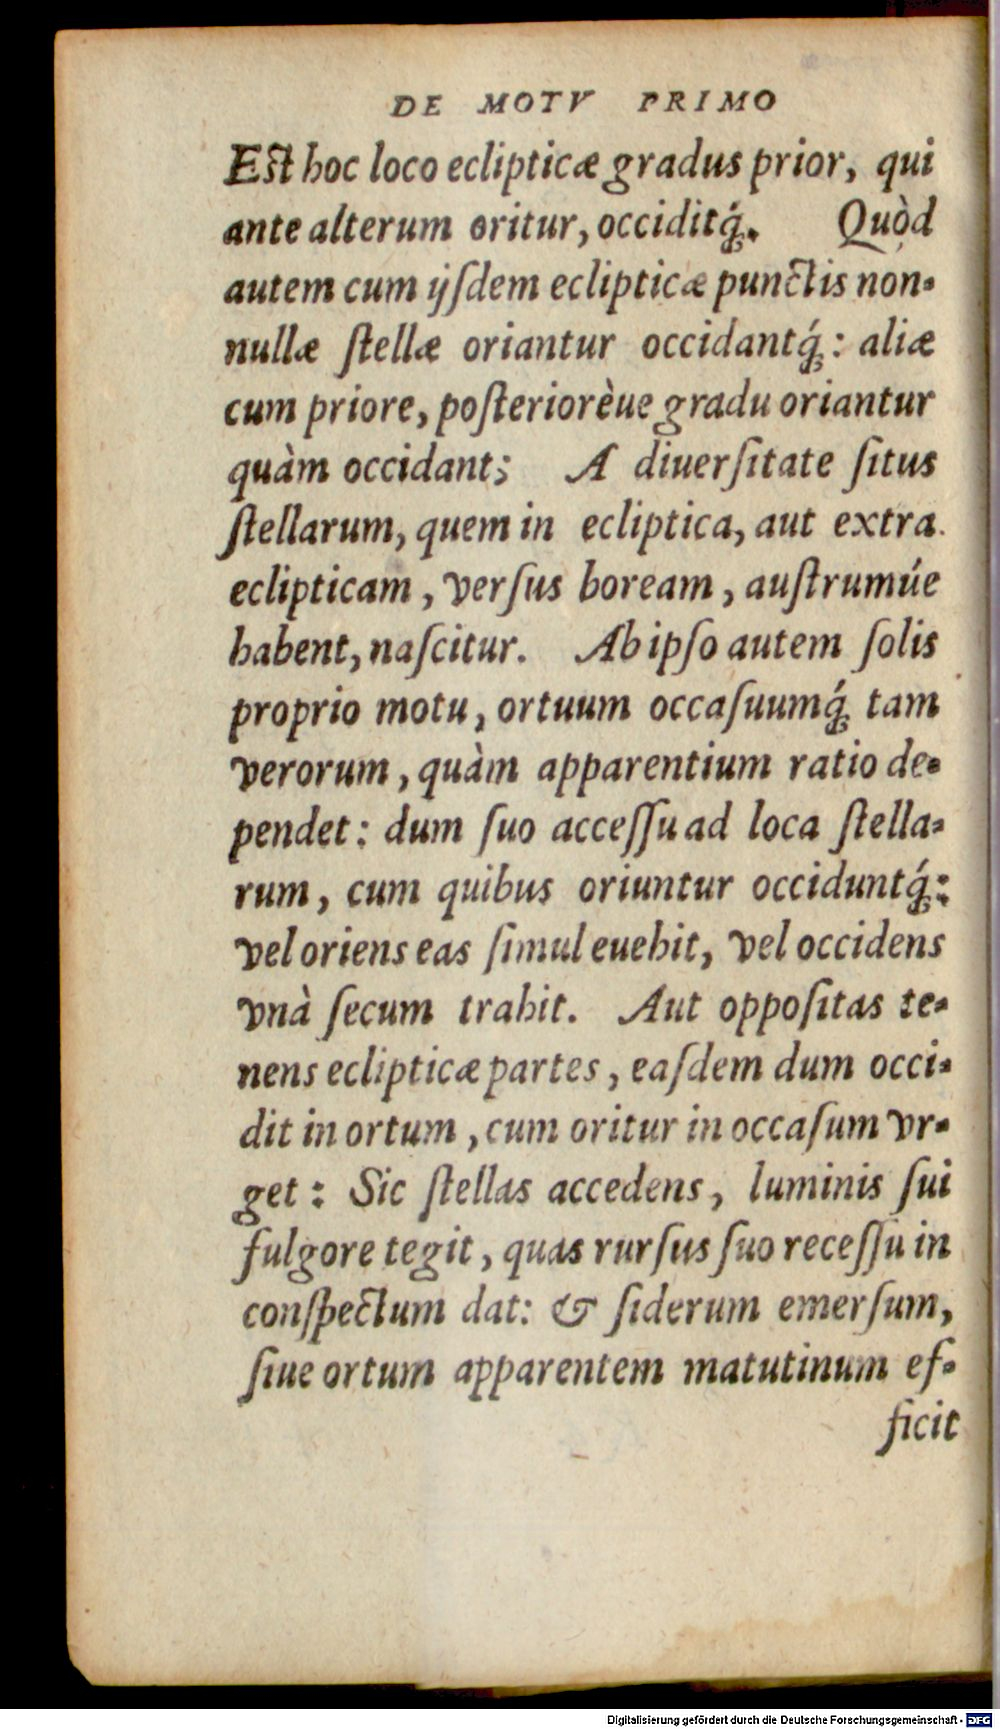 DE MOTV PRIMO
Est hoc loco eclipticæ gradus prior, qui
ante alterum oritur, occiditq́;. Quòd
autem cum ijſdem eclipticæ punctis non-
nullæ ſtellæ oriantur occidantq́;: aliæ
cum priore, poſteriorèue gradu oriantur
quàm occidant; A diuerſitate ſitus
ſtellarum, quem in ecliptica, aut extra
eclipticam, verſus boream, auſtrumúe
habent, naſcitur. Ab ipſo autem ſolis
proprio motu, ortuum occaſuumq́; tam
verorum, quàm apparentium ratio de-
pendet: dum ſuo acceſſu ad loca ſtella-
rum, cum quibus oriuntur occiduntq́;:
vel oriens eas ſimul euehit, vel occidens
vnà ſecum trahit. Aut oppoſitas te-
nens eclipticæ partes, eaſdem dum occi-
dit in ortum, cum oritur in occaſum vr-
get: Sic ſtellas accedens, luminis ſui
fulgore tegit, quas rurſus ſuo receſſu in
conſpectum dat: & ſiderum emerſum,
ſiue ortum apparentem matutinum ef-
ficit
Digitalisierung gefördert durch die Deutsche Forschungsgemeinschaft - DFG